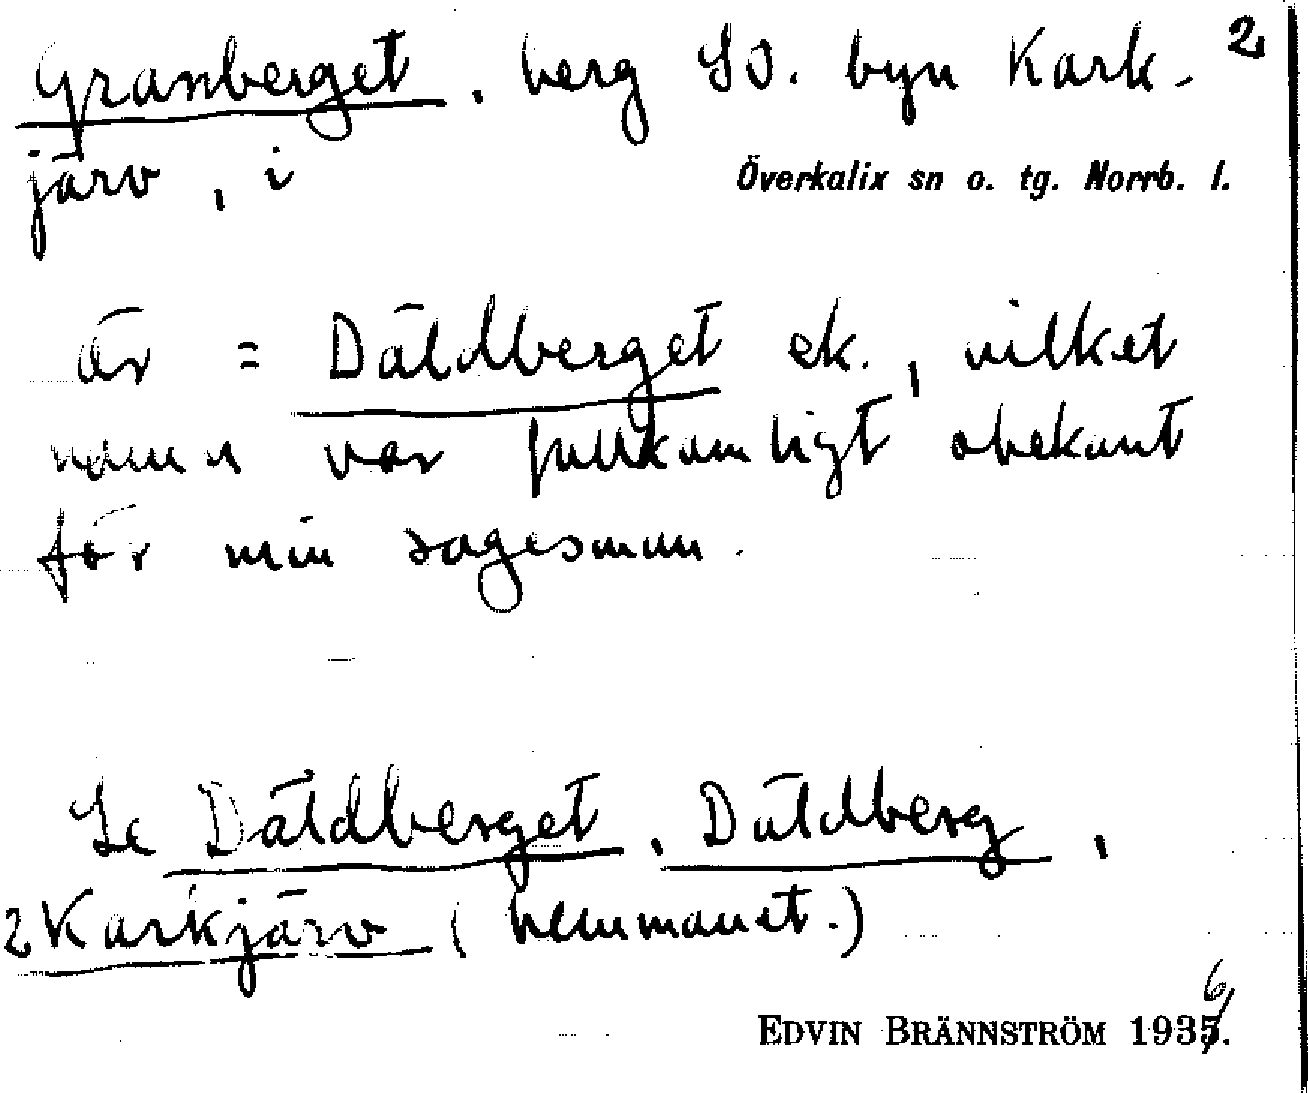 Granberget, berg SO. byn Kark- 2
järv, i Överkalix sn o. tg. Norrb. l.
är = Däldberget ek., vilket
namn var fullkomligt obekant
för min sagesman.
Se Däldberget, Däldberg,
2 Karkjärv (hemmanet.)
EDVIN BRÄNNSTRÖM 1936.